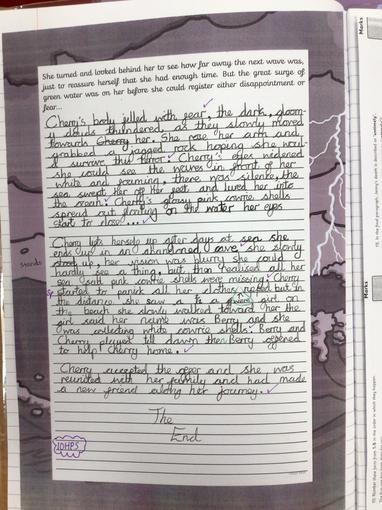 She turned and looked behind her to see how far away the next wave was,
just to reassure herself that she had enough time. But the great surge of
green water was on her before she could register either disappointment or
fear...
Cherry's body jelled with gear, the dark, gloom-
y clouds thundered as they slowly moved
towards Cherry her. She rose her arm and
grabbed a jagged rock hoping she woul-
d survive this terror. Cherry's eyes widened
she could see the waves in front of her
white and foaming, there was silence, the
sea swept her off her feet and lured her into
the ocean. Cherry's glossy pink cowrie shells
spread out floating on the water her eyes
start to close...
Cherry lifts herself up after days at sea she
ends up in an abandoned cave she slowly
stood up, her vision was blurry she could
hardly see a thing, but then realised all her
sea salt pink cowrie shells were missing. Cherry
started to panic and her clothes ripped but in
the distance she saw a girl on
the beach she slowly walked toward her the
girl said her name was Berry and she
was collecting white cowrie shells. Berry and
Cherry played till dawn then Berry offered
to help Cherry home.
Cherry accepted the offer and she was
reunited with her family and had made
a new friend along her journey.
The
End
1DHPS
Marks
Marks